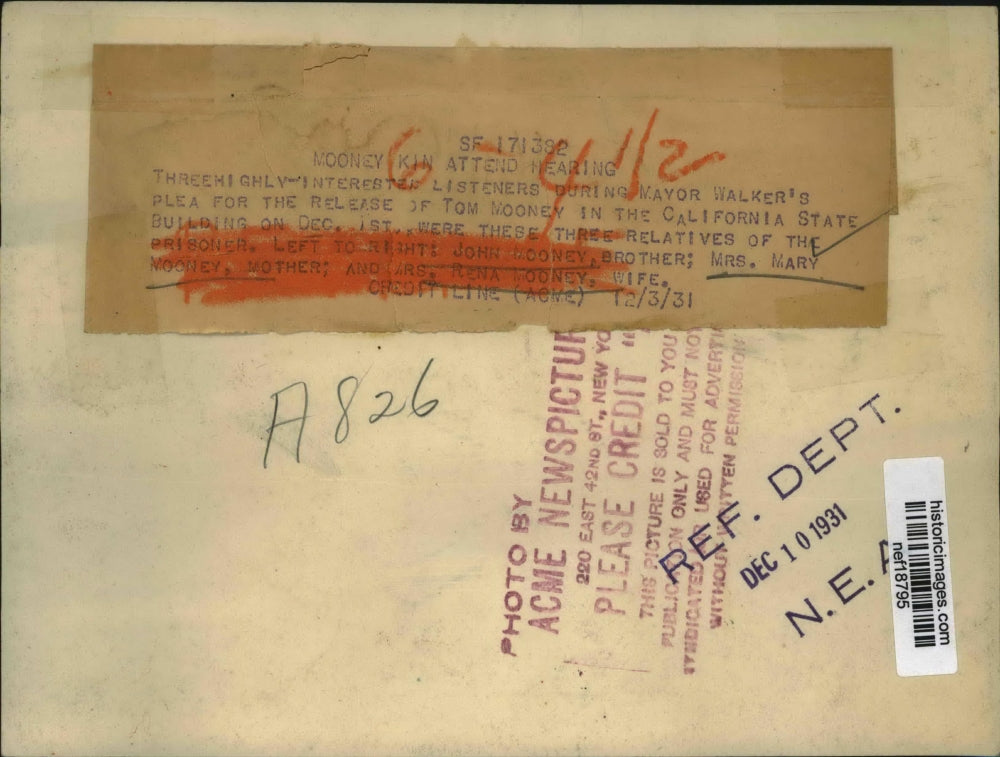 SF 171382
MOONEY KIN ATTEND HEARING
THREEHIGHLY-INTERESTED LISTENERS DURING MAYOR WALKER'S
PLEA FOR THE RELEASE OF TOM MOONEY IN THE CALIFORNIA STATE
BUILDING ON DEC. 1ST, WERE THESE THREE RELATIVES OF THE
PRISONER. LEFT TO RIGHT: JOHN MOONEY, BROTHER; MRS. MARY
MOONEY, MOTHER; AND MRS. RENA MOONEY, WIFE.
CREDIT LINE (ACME) 12/3/31
A826
PHOTO BY
ACME NEWSPICTU
220 EAST 42ND ST., NEW YO
PLEASE CREDIT "
THIS PICTURE IS SOLD TO YOU
PUBLICATION ONLY AND MUST NOT
SYNDICATED OR USED FOR ADVERTI
WITHOUT WRITTEN PERMISSION
REF. DEPT.
DEC 10 1931
N. E. A
historicimages.com
nef18795